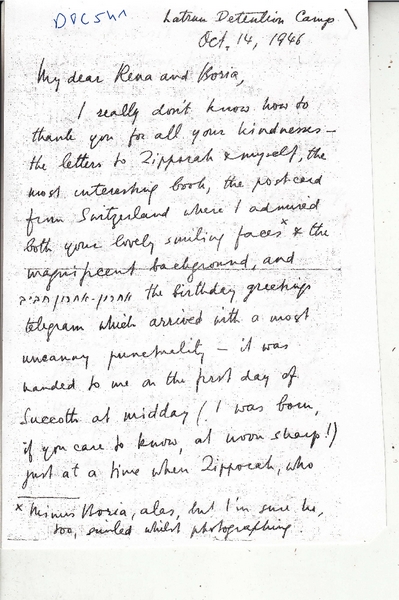 DOC 541
Latrun Detention Camp
Oct. 14, 1946
My dear Rena and Boria,
I really don't know how to
thank you for all your kindnesses –
the letters to Zipporah & myself, the
most interesting book, the postcard
from Switzerland where I admired
both your lovely smiling faces x & the
magnificent background, and
אחרון-אחרון חביב the birthday greetings
telegram which arrived with a most
uncanny punctuality – it was
handed to me on the first day of
Succoth at midday (I was born,
if you care to know, at noon sharp!)
just at a time when Zipporah, who
x Minus Boria, alas, but I'm sure he,
too, smiled whilst photographing.